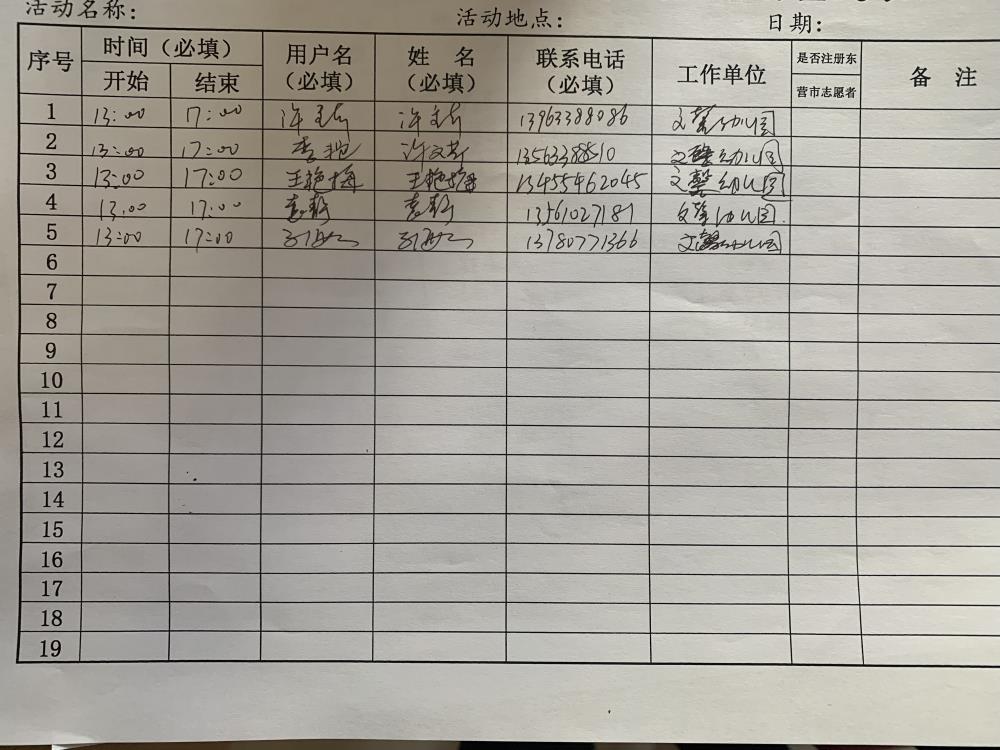 活动名称: 活动地点: 日期:
序号 时间（必填） 用户名（必填） 姓 名（必填） 联系电话（必填） 工作单位 是否注册东营市志愿者 备 注
开始 结束
1 13:00 17:00 13963388086 文馨幼儿园
2 13:00 17:00 13563388510 文馨幼儿园
3 13:00 17:00 王艳梅 王艳梅 13455462045 文馨幼儿园
4 13:00 17:00 袁 袁 13561027187 文馨幼儿园
5 13:00 17:00 13780771366 文馨幼儿园
6
7
8
9
10
11
12
13
14
15
16
17
18
19